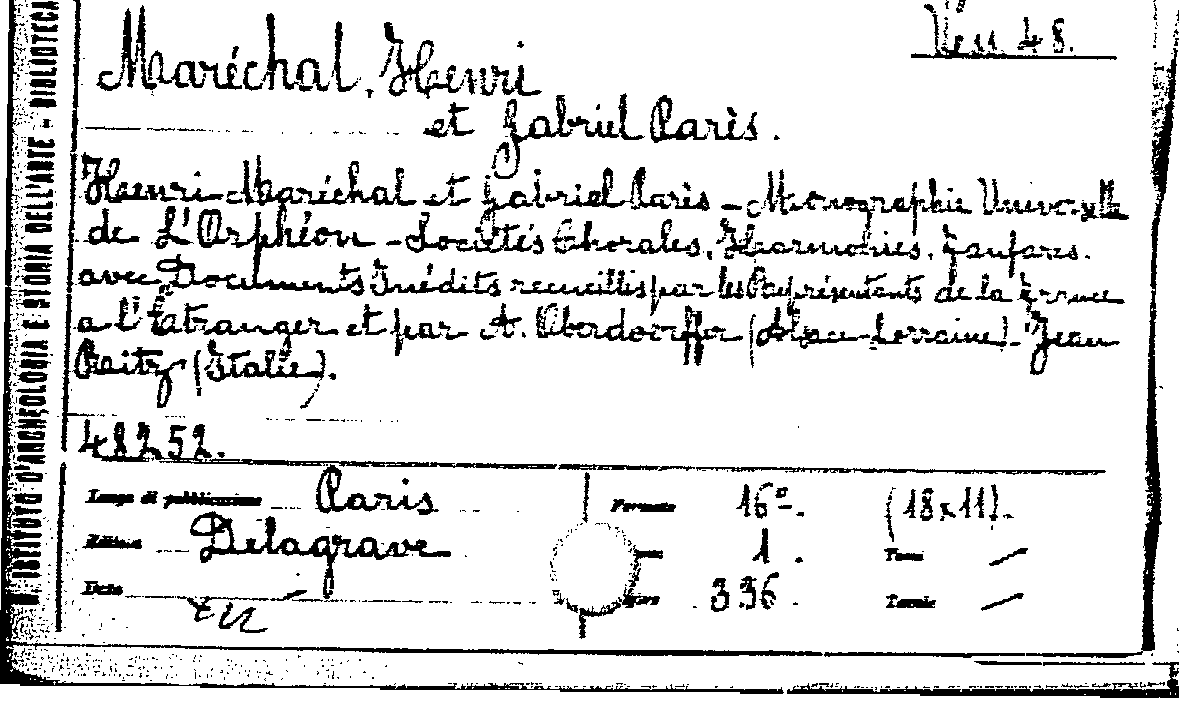 Ven 48.
Maréchal, Henri
et Gabriel Parès.
Henri Maréchal et Gabriel Parès - Monographie Universelle
de L'Orphéon - Sociétés Chorales, Harmonies, Fanfares.
avec Documents Inédits recueillis par les Représentants de la France
a l'Etranger et par A. Oberdoerffer (Alsace-Lorraine) - Jean
Reitz (Italie).
48252.
Luogo di pubblicazione Paris Formato 16º. (18x11).
Editore Delagrave 1. Tomi
Data 336. Tavole
R. ISTITUTO D'ARCHEOLOGIA E STORIA DELL'ARTE - BIBLIOTECA